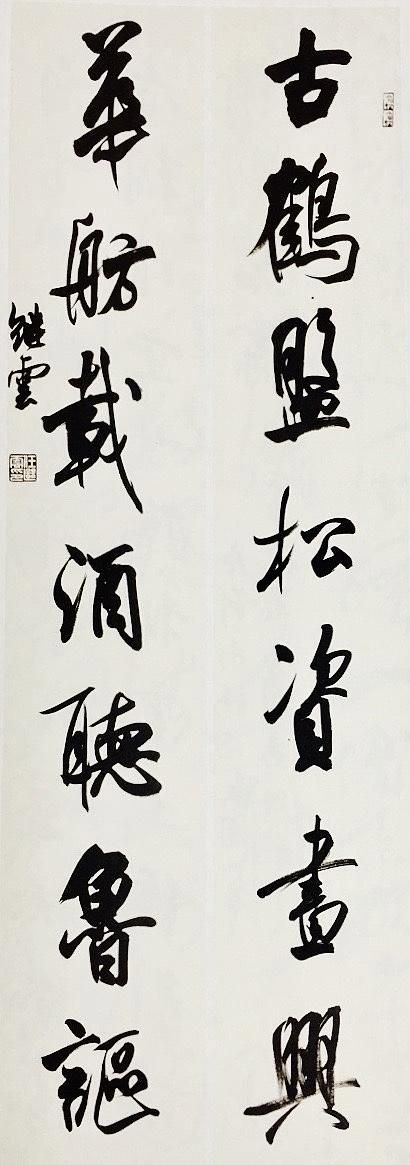 古鶴盤松資畫興
華舫載酒聽魯謳
繼雲